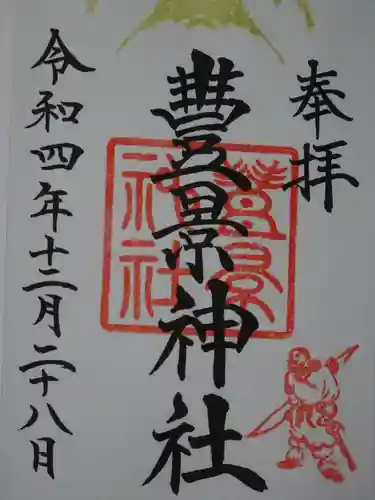 奉拝
豊景神社
令和四年十二月二十八日